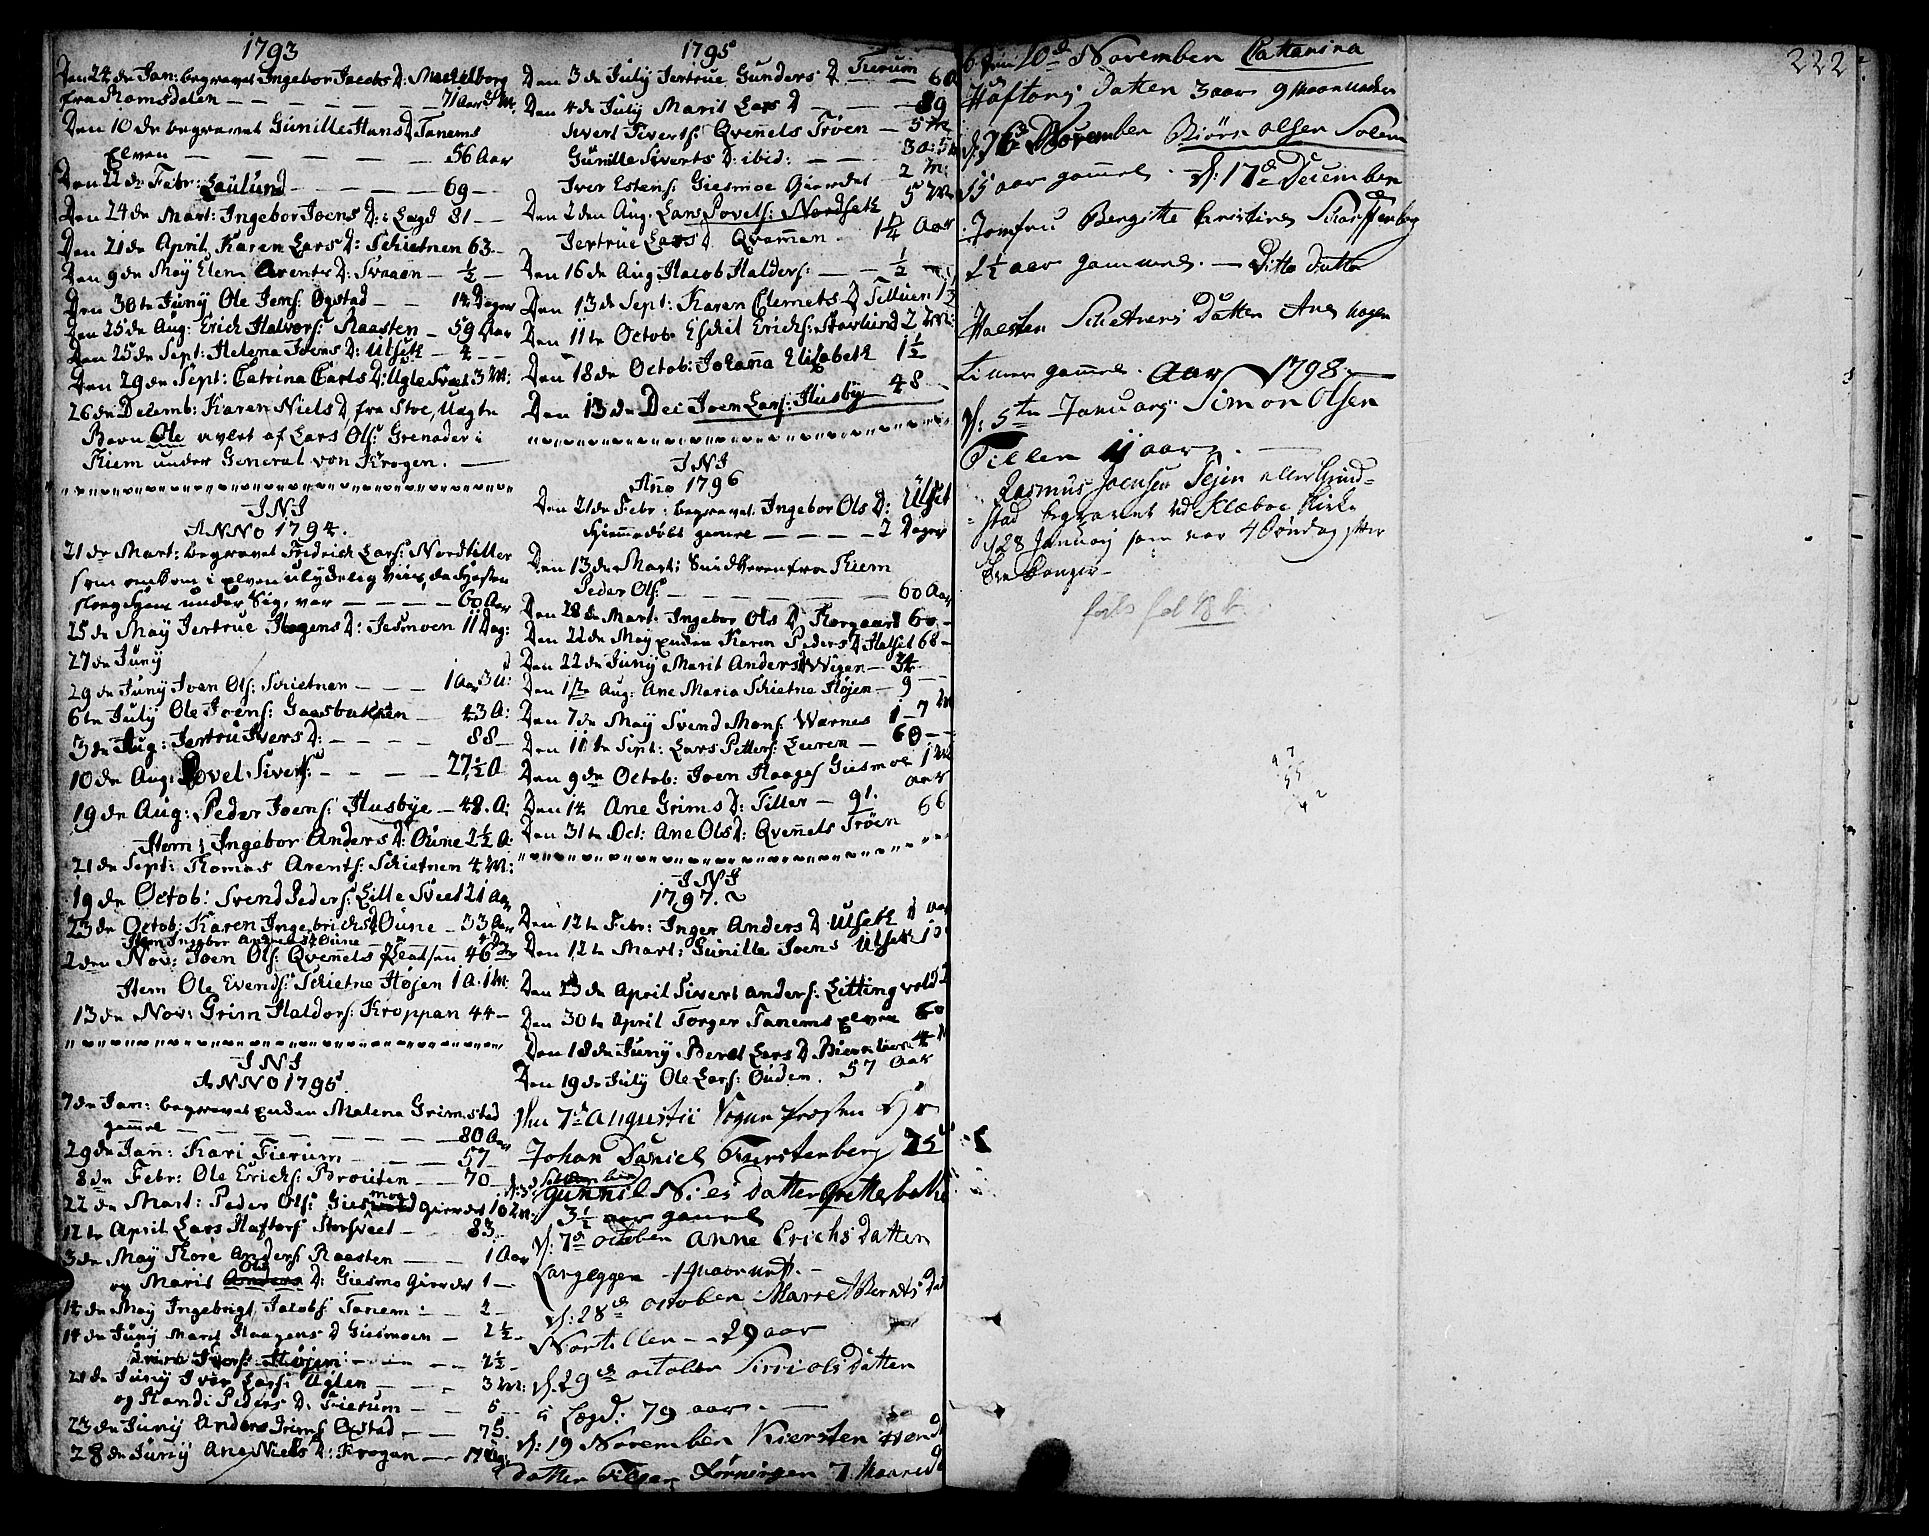 1793
Den 24 de Jan: begravet Ingebor Jacobs D: Mechelborg
fra Romsdalen — — — 71 Aar
Den 10 de begravet Gunille Hans D Tanems
Elven — — — 56 Aar
Den 22 de Febr: Laulund — — — 69 —
Den 24 de Mart: Ingebor Joens D: Løgd 81 —
Den 21 de April Karen Lars D: Schietnen 63 —
Den 9 de Maÿ Elen Arents D: Svaaen — ½ —
Den 30 te Junÿ Ole Jens: Øgstad — — 14 Dager
Den 25 de Aug: Erich Halvors: Raasten — 59 Aar
Den 25 de Sept: Helena Joens D: Ulseth — 4 — —
Den 29 de Sept: Catrina Carls D: Ugle Sveet 3 M:
26 de Decemb: Karen Niels D fra Stoe, Uægte
Barn Ole avlet af Lars Ols: Grenader i
Kiem under General von Krogen. —
I N I
ANNO 1794.
21 de Mart: begravet Fredrich Lars: Nordtiller
som omkom i elven ulÿdelig viis, da Hæsten
slog Hiem under Sig, var — — — 60 Aar
25 de Maÿ Jertrue Haagens D: Jesmoen 11 Dag:
27 de Junÿ
29 de Junÿ Iven Ols: Schietnen — — — 1 Aar 3 U:
6 te Julÿ Ole Joens: Gaasbakken — 43 A:
3 de Aug: Jertru Ivers D: — — — 88 —
10 de Aug: Povel Sivers: — — — 27½ A
19 de Aug: Peder Joens: Husbÿe — 48. A:
Item: Ingebor Anders D: Oune 2½ A:
21 de Sept: Thomas Arents: Schietnen 4 M:
19 de Octob: Svend Peders: Lille Sveet 21 Aar
23 de Octob: Karen Ingebrichs D Oune — 33 Aar
Item Ingebor Anders D Oune
2 den Nov: Joen Ols: Qvennels Pladsen 46
Item Ole Evends: Schietne Høÿen 1 A. 1 M:
13 de Nov: Grim Haldors: Kroppan 44 —
I N I
ANNO 1795
7 de Jan: begravet Enken Malena Grimstad
gamel — — — 80 Aar
29 de Jan: Kari Fierum — — — 57 —
8 de Febr: Ole Erichs: Brouten — — 70 —
22 de Mart: Peder Ols: Giesmoe Gierdet 10 M:
12 te April Lars Haftors: Storsveet — 83 —
3 de Maÿ Tore Anders: Raasten — — 1 Aar
og Marit Ols D: Giesmo Gierdet 1 —
14 de Maÿ Ingebrigt Jacobs Tanem: — 2 —
14 de Junÿ Marit Haagens D Giesmoen — 2½ —
Ivers: Høÿem — — — 2½ —
21 de Junÿ Iver Lars: Uglen — — — 3 M:
og Randi Peders D: Fierum — — 5 —
23 de Junÿ Anders Jens: Øxstad — — 75.
28 de Junÿ Ane Niels D: Krogan — 17
1795
Den 3 de Julÿ Jertrue Gunders D Fierum 60
Den 4 de Julÿ Marit Lars D — — — 89
Sivert Siverts: Qvennels Trøen — 5
Gunille Siverts D: ibid: — — — 3 a: 5
Iver Estens: Giesmoe Gierdet — 2 M:
Den 2 den Aug. Lars Povels: Nordseth 5 M
Jertrue Lars D. Qvamen. 1¼ Aar
Den 16 de Aug Jacob Halders: — — ½
Den 13 de Sept: Karen Clemets D Tilluen
Den 11 te Octob Eschil Erichs: Stavlund 2 M:
Den 18 de Octob: Johanna Elisabeth 1½
Den 13 de Dec Joen Lars: Husbÿ 48 —
I N I
Año 1796
Den 21 de Febr: begravet Ingebor Ols D: Ulset
Hiemmedøbt gamel — — — 2 Dager
Den 13 de Mart: Smidt fra Kiem
Peder Ols: — — — 60 Aar
Den 28 de Mart: Ingebor Ols D Korgaard 60 —
Den 22 de Maÿ Enken Karen Peders D Halset 68 —
Den 22 de Junÿ Marit Anders D Wigen — 34 —
Den 12 te Aug: Ane Maria Schietne Høÿen — 9 —
Den 7 de Maÿ Svend Mons: Warnes 1 — 7 M
Den 11 te Sept: Lars Petters: Leeren — 60 —
Den 9 de Octob: Joen Haages Giesmoe 1 M
Den 14 Ane Grims D: Tiller — 91. aar
Den 31 te Oct: Ane Ols D: Qvennels Trøen 66
I N I
1797.
Den 12 te Febr: Inger Anders D Ulseth 1 aar
Den 12 te Mart: Gunille Joens Ulseth
Den 23 de April Sivert Anders: Litting vold
Den 30 te April Torger Tanems Elven 60
Den 18 de Junÿ Beret Lars D 4
Den 19 de Julÿ Ole Lars: Ouden. 57 Aar
Den 7de Augustii Sogne Præsten Hr
Johan Daniel Fürstenberg 75
d: 3d Septembr
Gunnil Niels Datter Grettebakk
3½ aar gamel
d: 7de october Anne Erichs Datter
Langeggen — 1 maaned. —
d: 28de october Marret Bernts Dat
Nortiller — 29 aar
d: 29de october Sirri ols Datter
i Løgd: 79 aar. —
d: 19 November Kiersten
Datter Tiller 7 Maaned
den 10de November Cattarina
Haftors Datter 3 aar 9 Maaneder
d: 26de November Biørn Olsen Solem
55 aar gammel. d: 17de December
Jomfru Bergitte Christine Scharffenberg
1½ aar gammel. — Ditto dato
Haesten Schetnens Datter Ane nogen
timer gamel. Aar 1798. —
d: 5te January Simon Olsen
Tiller 11 aar. —
Rasmus Joensen Tejen aller Grind-
stad begravet ved Klæboe Kirke
d 28 January som var 4 Søndag efter
Hre Konger —
forts fol 48 b.
222